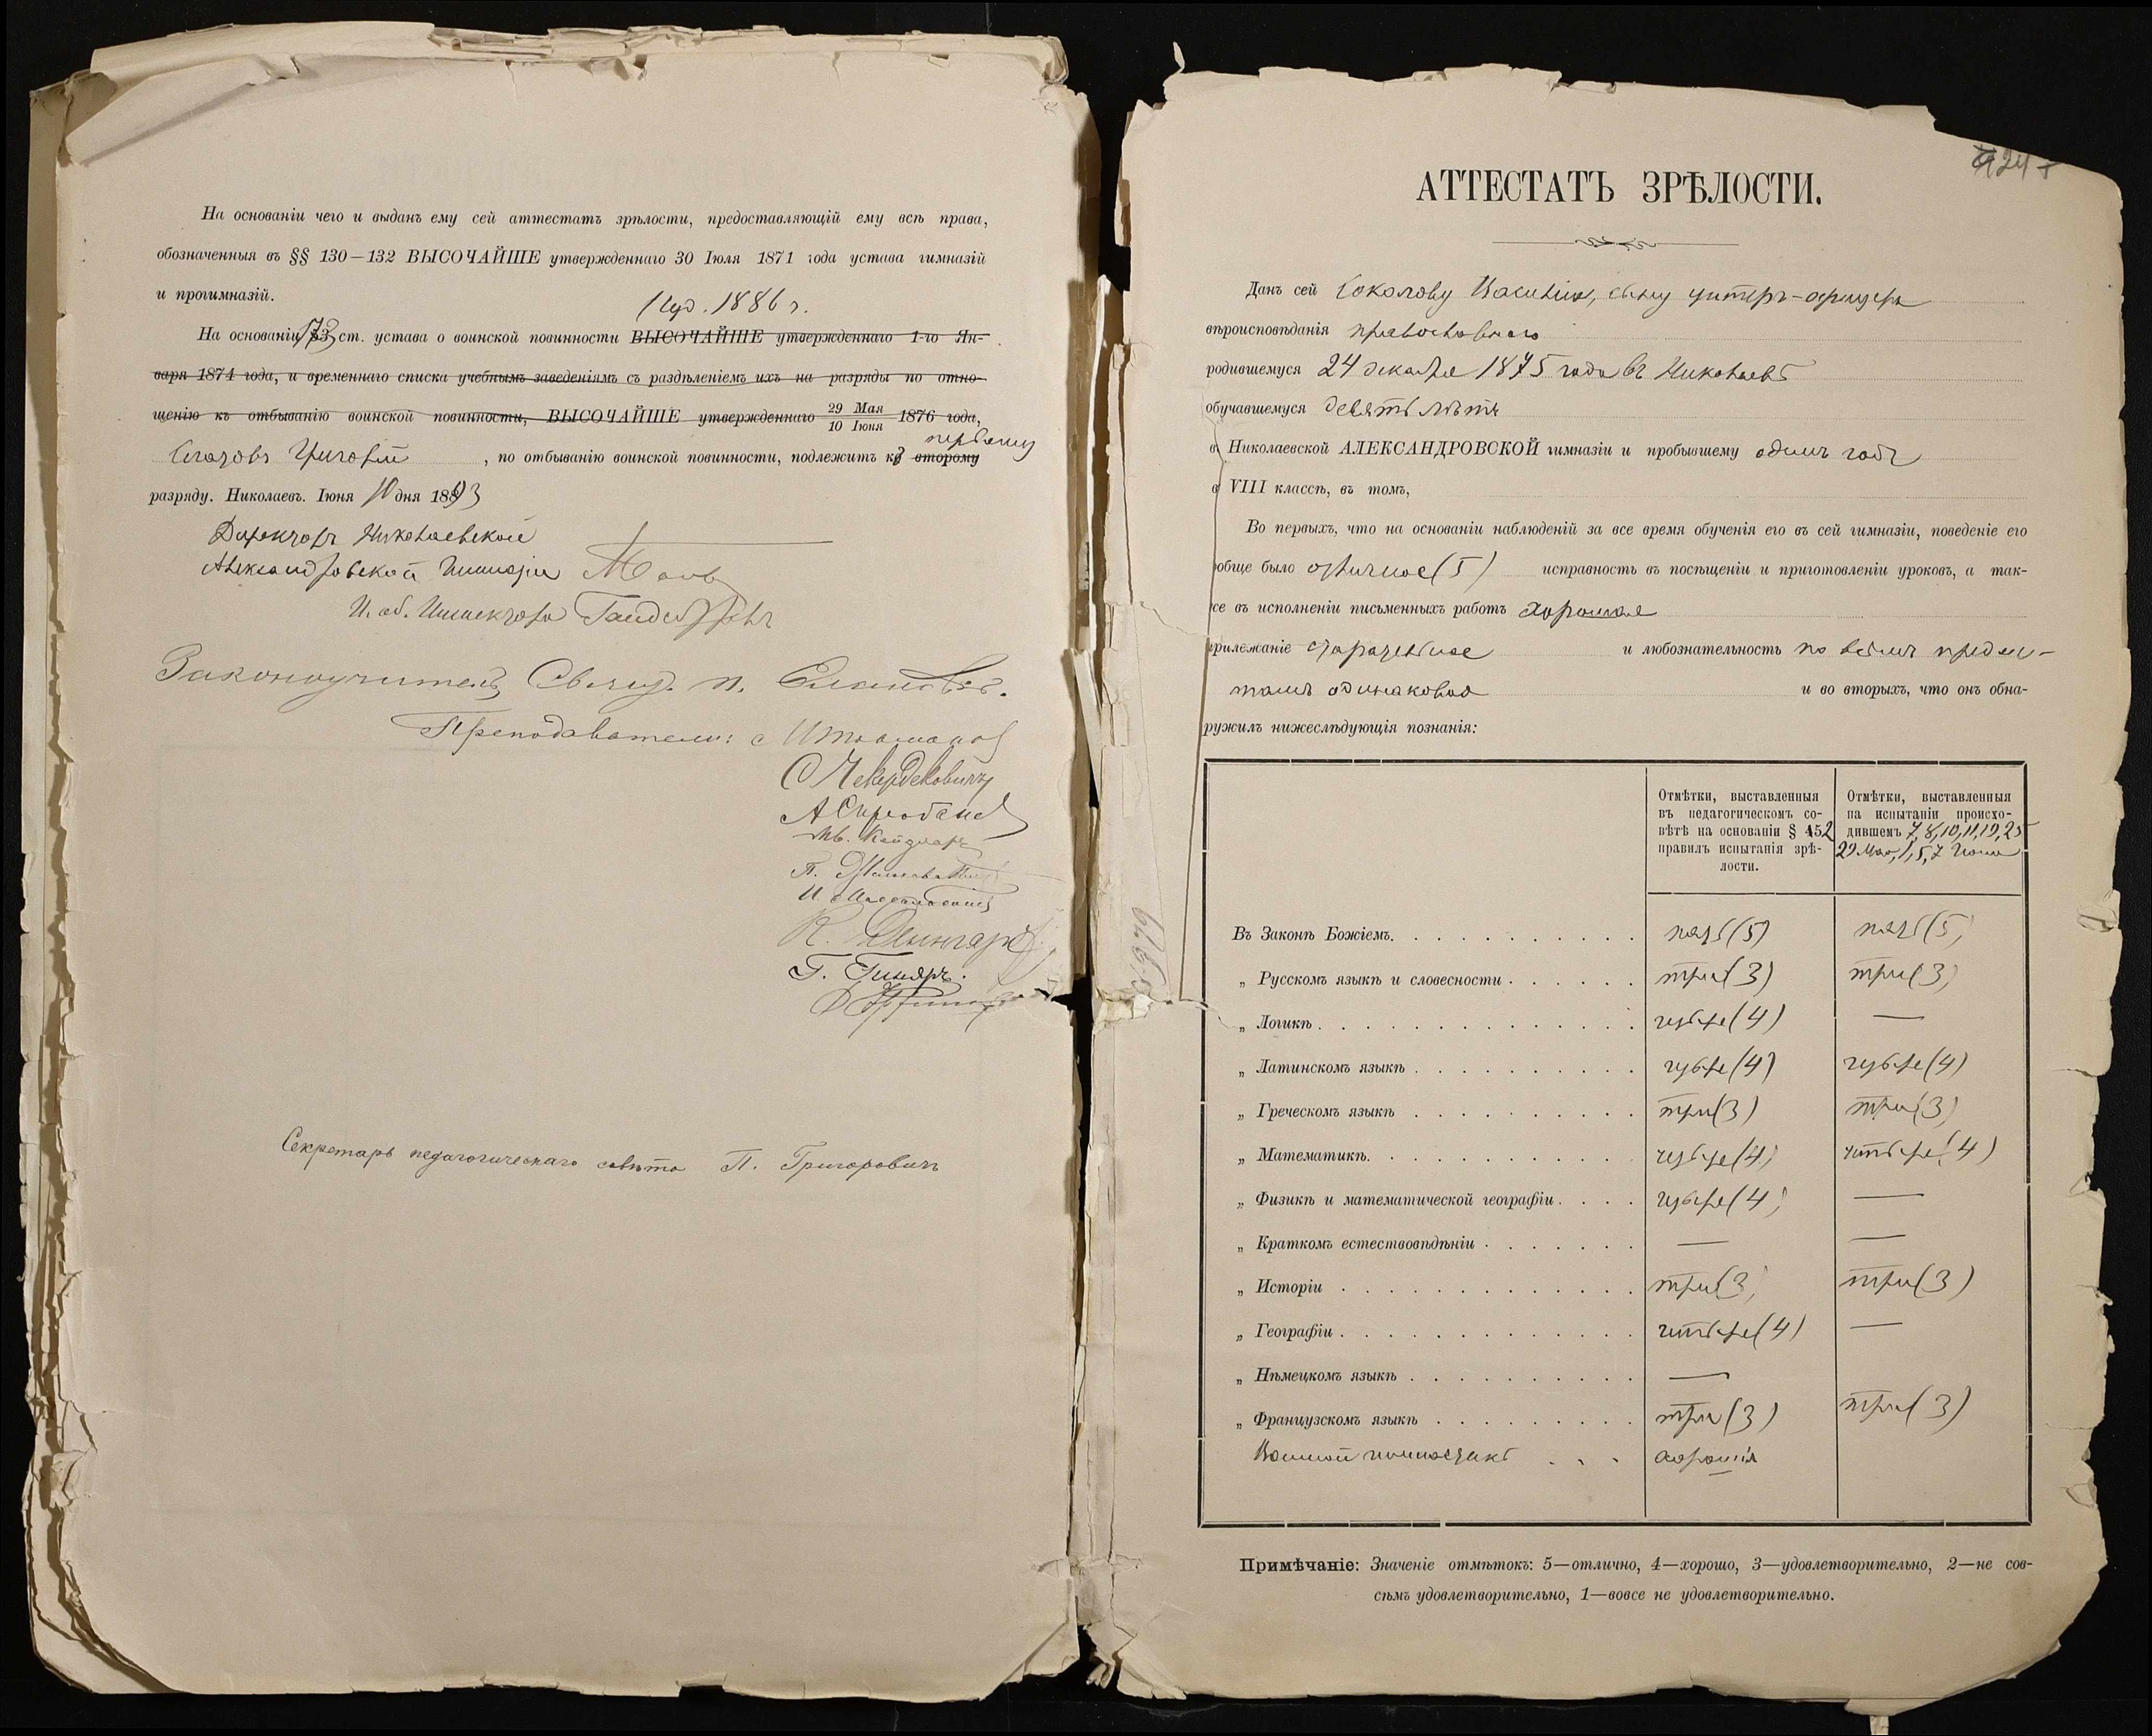 На основаніи чего и выданъ ему сей аттестатъ зрѣлости, предоставляющій ему всѣ права,
обозначенныя въ §§ 130—132 ВЫСОЧАЙШЕ утвержденнаго 30 Іюля 1871 года устава гимназій
и прогимназій.
1886 г.
На основаніи 173 ст. устава о воинской повинности ВЫСОЧАЙШЕ утвержденнаго 1-го Ян-
варя 1874 года, и временнаго списка учебнымъ заведеніямъ съ раздѣленіемъ ихъ на разряды по отно-
шенію къ отбыванію воинской повинности, ВЫСОЧАЙШЕ утвержденнаго 29 Мая / 10 Іюня 1876 года,
первому
Григорій , по отбыванію воинской повинности, подлежитъ къ второму
разряду. Николаевъ. Іюня 10 дня 1893
Директоръ Николаевской
Александровской Гимназіи
И. об. Инспектора
Законоучитель Свящ. п.
Преподаватели:
С Чекердековичъ
К.
Г.
Секретарь педагогическаго совѣта П. Григоровичъ
АТТЕСТАТЪ ЗРѢЛОСТИ.
Данъ сей Соколову Василію, сыну унтеръ-офицера
вѣроисповѣданія православнаго
родившемуся 24 декабря 1875 года въ Николаевѣ
обучавшемуся девять лѣтъ
в Николаевской АЛЕКСАНДРОВСКОЙ гимназіи и пробывшему одинъ годъ
в VIII классѣ, въ томъ,
Во первыхъ, что на основаніи наблюденій за все время обученія его въ сей гимназіи, поведеніе его
вообще было отличное (5) исправность въ посѣщеніи и приготовленіи уроковъ, а так-
же въ исполненіи письменныхъ работъ хорошая
прилежаніе старательное и любознательность по всѣмъ предме-
тамъ одинаковая и во вторыхъ, что онъ обна-
ружилъ нижеслѣдующія познанія:
Отмѣтки, выставленныя
въ педагогическомъ со-
вѣтѣ на основаніи § 452
правилъ испытанія зрѣ-
лости.
Отмѣтки, выставленныя
на испытаніи происхо-
дившемъ 7, 8, 10, 11, 19, 25
29 Мая, 1, 5, 7 Іюня
Въ Законѣ Божіемъ. пять (5) пять (5)
„ Русскомъ языкѣ и словесности три (3) три (3)
„ Логикѣ четыре (4) —
„ Латинскомъ языкѣ четыре (4) четыре (4)
„ Греческомъ языкѣ три (3) три (3)
„ Математикѣ. четыре (4) четыре (4)
„ Физикѣ и математической географіи четыре (4) —
„ Краткомъ естествовѣдѣніи — —
„ Исторіи три (3) три (3)
„ Географіи четыре (4) —
„ Нѣмецкомъ языкѣ —
„ Французскомъ языкѣ три (3) три (3)
Военной гимнастикѣ хорошія
Примѣчаніе: Значеніе отмѣтокъ: 5—отлично, 4—хорошо, 3—удовлетворительно, 2—не сов-
сѣмъ удовлетворительно, 1—вовсе не удовлетворительно.